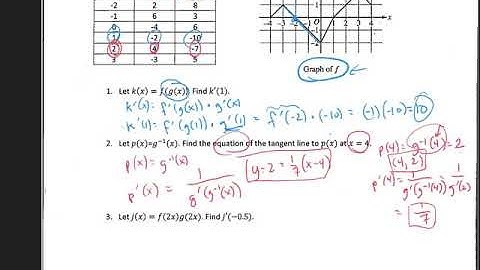 -2 2 8
-1 6 3
0 -4 6
1 -2 -10
2 4 -7
3 -3 5
-4 -2 O 2 4 x
Graph of f
1. Let k(x) = f(g(x)). Find k'(1).
k'(x) = f'(g(x)) · g'(x)
k'(1) = f'(g(1)) · g'(1) = f'(-2) · (-10) = (-1)(-10) = 10
2. Let p(x)=g⁻¹(x). Find the equation of the tangent line to p(x) at x = 4.
p(x) = g⁻¹(x)
p'(x) = 1/g'(g⁻¹(x))
y-2 = 1/7(x-4)
p(4) = g⁻¹(4) = 2
(4, 2)
p'(4) = 1/g'(g⁻¹(4)) = 1/g'(2)
= 1/-7
3. Let j(x) = f(2x)g(2x). Find j'(-0.5).